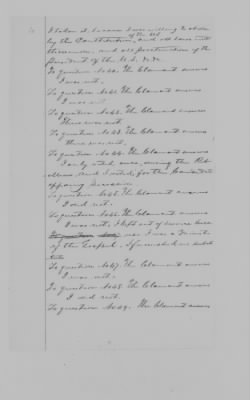 I taken it because I was willing to abide
by the Constitution of the US, and old laws
and old proclamation of the
President of the U.S.
To question No 40. The Claimant answers
I was not.
To question No 41. The Claimant answers
I was not
To question No 42. The Claimant answers
There was not
To question No 43. The Claimant answers
there was not.
To question No 44. The Claimant answers
I only voted once during the Rebellion
and I voted for the Candidate
opposing Secession
To question No 45. The Claimant answers
I did not.
To question No 46. The Claimant answers
I was not, I kept out of service
was I was a Minister
of the Gospel.
To question No 47. The Claimant answers
I was not.
To question No 48. The Claimant answers
I did not.
To question No 49. The Claimant answers